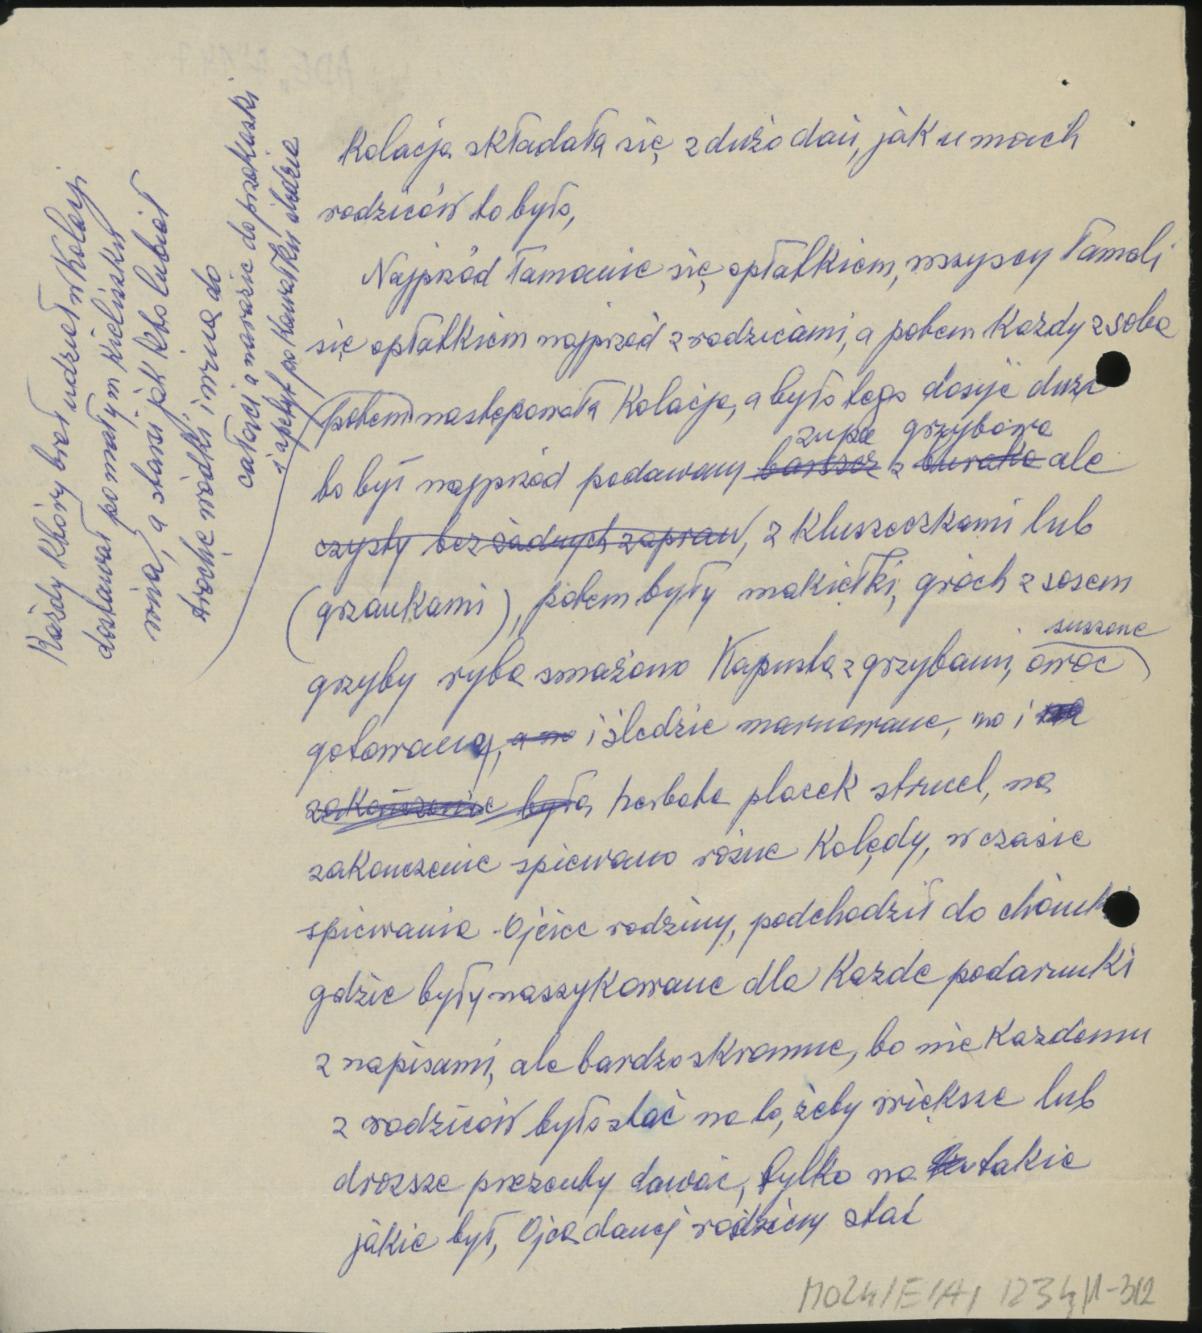 Kolacja składała się z dużo dań, jak u moich
rodziców to było,
Najprzód łamanie się opłatkiem, wszyscy łamali
się opłatkiem najprzód z rodzicami, a potem każdy z sobą
potem następowała Kolacja, a było tego dosyć dużo
zupa grzybowa
to był najprzód podawany barszcz z buraka ale
czysty bez żadnych zapraw, z kluszeczkami lub
(grzankami), potem były makiełki, groch z sosem
suszone
grzyby ryba smażona Kapusta z grzybami, owoc
gotowany, a no i śledzie marnowane, no i
zakończenie była herbata placek strucel, na
zakonczenie spiewano rożne Kolędy, w czasie
spiewania Ojciec rodziny, podchodził do choinki
gdzie były naszykowane dla Każde podarunki
z napisami, ale bardzo skromne, bo nie Każdemu
z rodziców było stać na to, żeby większe lub
droższe prezenty dawać, tylko na takie
jakie był, Ojca danej rodziny stać
Każdy który brał udział w Kolacji
dostawał po małym kieliszku
wina, a starsi jak kto lubiał
trochę wódki, i wina do
całości a narazie do przekąski
i apetyt po kawałku śledzia
MO24/E/A/1234/1-312